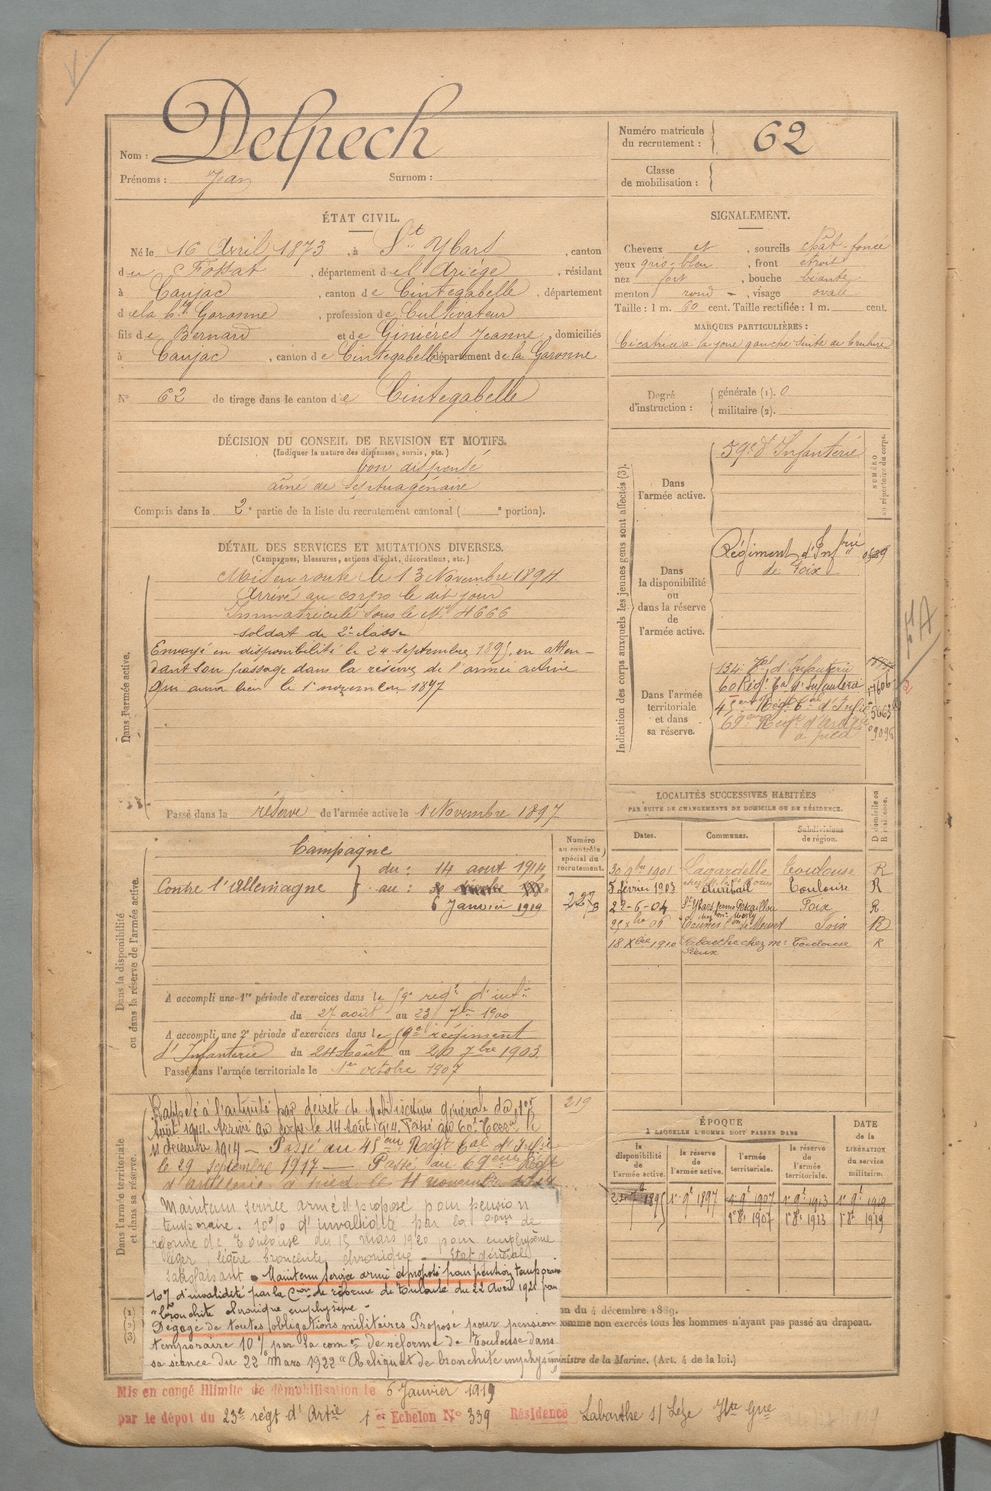 Nom : Delpech
Prénoms : Jean Surnom :
Numéro matricule du recrutement : 62
Classe de mobilisation :
ÉTAT CIVIL.
Né le 16 Avril 1873, à St Ybars, canton
de Fossat, département de l'Ariège, résidant
à Caujac, canton de Cintegabelle, département
de la Hte Garonne, profession de Cultivateur
fils de Bernard et de Ginières Jeanne, domiciliés
à Caujac, canton de Cintegabelle département de la Garonne
No 62 de tirage dans le canton de Cintegabelle
SIGNALEMENT.
Cheveux et, sourcils chât-foncé
yeux gris-bleu, front étroit
nez fort, bouche béante
menton rond, visage ovale
Taille : 1 m. 60 cent. Taille rectifiée : 1 m. cent.
MARQUES PARTICULIÈRES :
Cicatrice à la joue gauche suite de brulure
Degré d'instruction : générale (1). 0
militaire (2).
DÉCISION DU CONSEIL DE REVISION ET MOTIFS.
(Indiquer la nature des dispenses, sursis, etc.)
bon dispensé
aîné de septuagénaire
Compris dans la 2e partie de la liste du recrutement cantonal ( e portion).
DÉTAIL DES SERVICES ET MUTATIONS DIVERSES.
(Campagnes, blessures, actions d'éclat, décorations, etc.)
Dans l'armée active.
Mis en route le 13 Novembre 1894
Arrivé au corps le dit jour
Immatriculé sous le No 4666
soldat de 2e classe
Envoyé en disponibilité le 24 septembre 1895, en atten-
dant son passage dans la réserve de l'armée active
qui aura lieu le 1er novembre 1897
Passé dans la réserve de l'armée active le 1 Novembre 1897
Indication des corps auxquels les jeunes gens sont affectés (3).
NUMÉRO au répertoire du corps.
Dans l'armée active.
59e d'Infanterie
Dans la disponibilité ou dans la réserve de l'armée active.
Régiment d'Infrie
de Foix
Dans l'armée territoriale et dans sa réserve.
134e Tal d'Infanterie
60 Régt Tal d'Infanterie
45eme Régt Tal d'Infie
69eme Régt d'artie
à pied
LOCALITÉS SUCCESSIVES HABITÉES
PAR SUITE DE CHANGEMENTS DE DOMICILE OU DE RÉSIDENCE.
Dates. Communes. Subdivisions de région. Domicile ou Résidence.
20 9bre 1901 Lagardelle Toulouse R
5 février 1903 Auribail Toulouse R
22-6-04 St Ybars Foix R
Foix R
18 Xbre 1910 Labarthe chez Mr Toulouse R
Dans la disponibilité ou dans la réserve de l'armée active.
Campagne
Contre l'Allemagne du : 14 aout 1914
au :
6 Janvier 1919
Numéro au contrôle spécial du recrutement.
A accompli une 1re période d'exercices dans le 59e régt d'infie
du 27 août au 23 7bre 1900
A accompli une 2e période d'exercices dans le 59e régiment
d'Infanterie du 24 Août au 20 7bre 1903
Passé dans l'armée territoriale le 1er octobre 1907
Dans l'armée territoriale et dans sa réserve.
219
Rappelé à l'activité par décret de Mobilisation générale du 1er
Août 1914. Arrivé au corps le 14 Août 1914. Passé au 60e Terral le
11 décembre 1914 - Passé au 45eme Regt Tal d'Infie
le 29 septembre 1917 - Passé au 69eme Régt
d'artillerie à pied le 4 novembre
Maintenu service armé et proposé pour pension
temporaire. 10% d'invalidité par la Con de
réforme de Toulouse du 15 mars 1920 pour emphysème
léger, légère bronchite chronique - Etat général
satisfaisant. Maintenu service armé et proposé pour pension temporaire
10% d'invalidité par la Con de réforme de Toulouse du 22 Avril 1921 pour
"bronchite chronique emphysème"
Dégagé de toutes obligations militaires Proposé pour pension
temporaire 10% par la com on de réforme de Toulouse dans
sa séance du 22 Mars 1922 "Reliquat de bronchite emphysème"
ÉPOQUE
À LAQUELLE L'HOMME DOIT PASSER DANS
la disponibilité de l'armée active. la réserve de l'armée active. l'armée territoriale. la réserve de l'armée territoriale.
DATE de la LIBÉRATION du service militaire.
1er 9bre 1897 1er 9bre 1907 1er 9bre 1913 1er 9bre 1919
1er 8bre 1907 1er 8bre 1913 1er 8bre 1919
du 4 décembre 1889.
comme non exercés tous les hommes n'ayant pas passé au drapeau.
ministre de la Marine. (Art. 4 de la loi.)
Mis en congé illimité de démobilisation le 6 Janvier 1919
par le dépôt du 23e régt d'Artie 1er Echelon No 339 Résidence Labarthe s/ Lèze Hte Gne